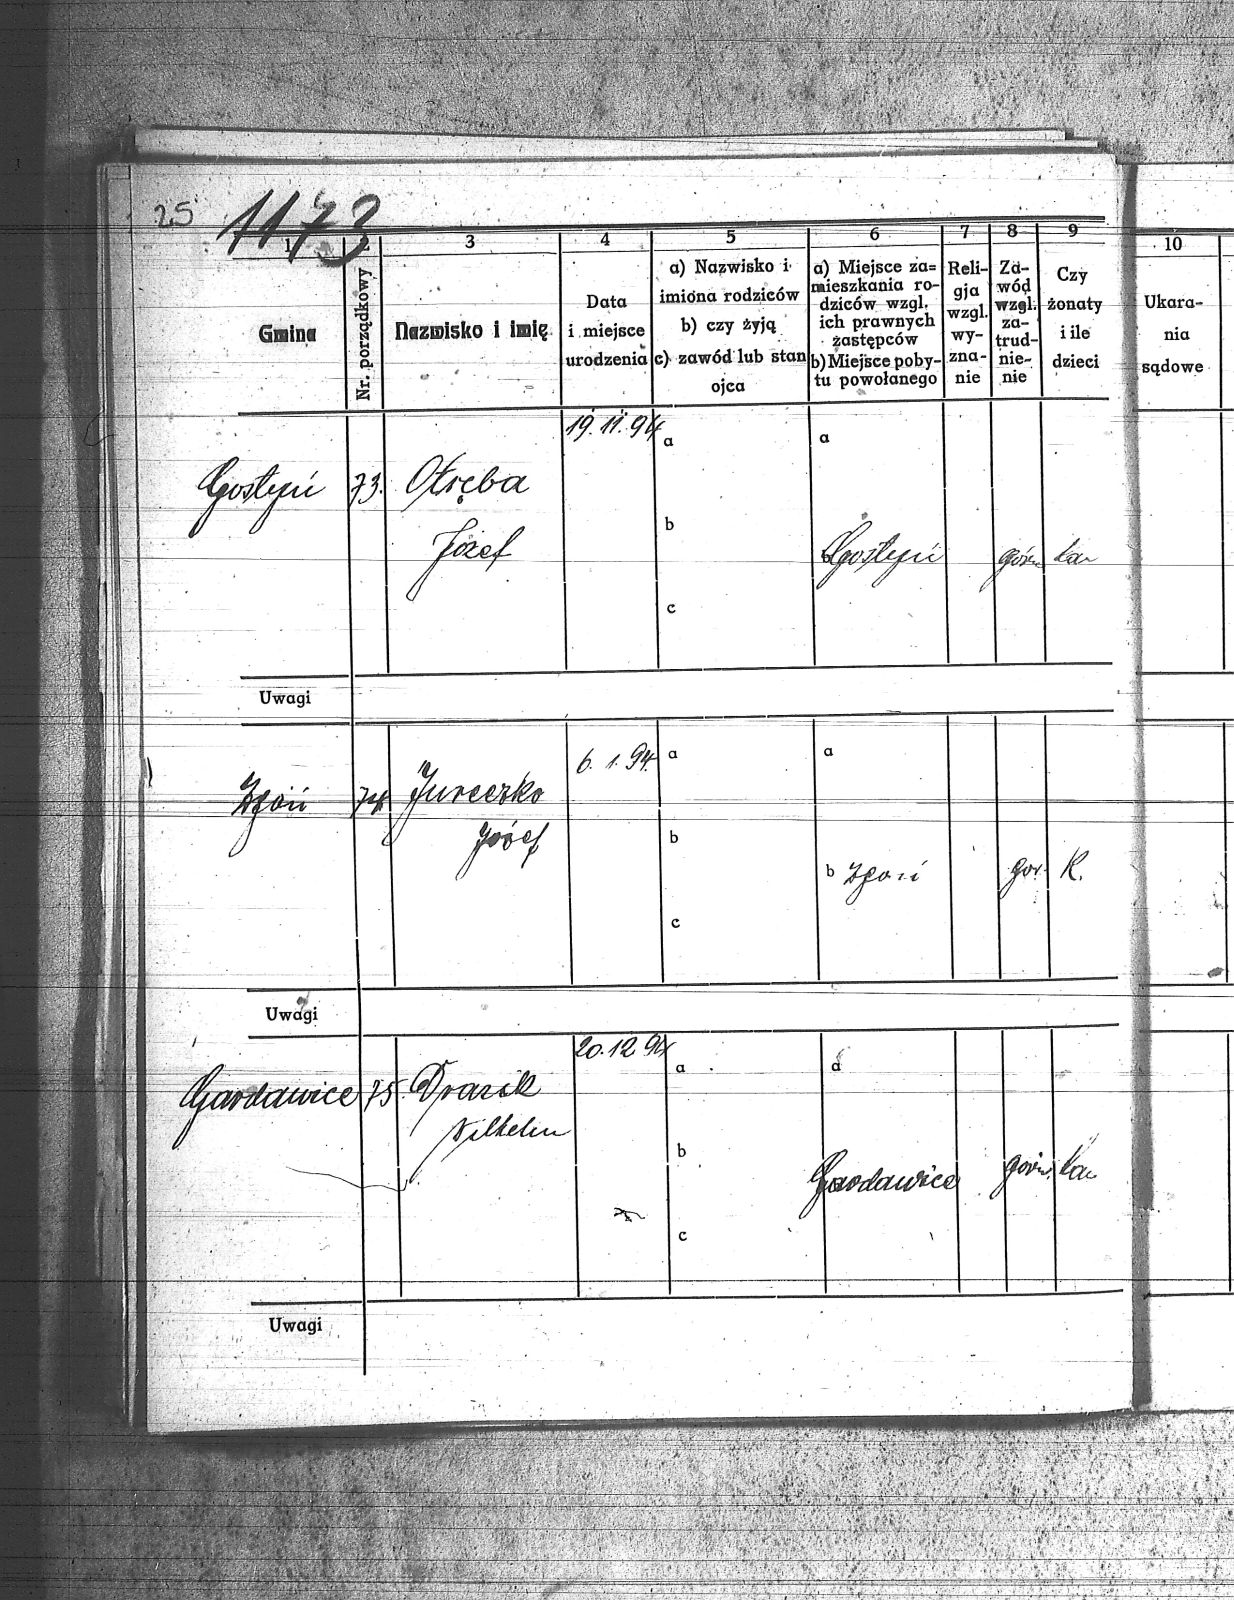 25
1173
1 2 3 4 5 6 7 8 9 10
Gmina
Nr. porządkowy
Nazwisko i imię
Data
i miejsce
urodzenia
a) Nazwisko i
imiona rodziców
b) czy żyją
c) zawód lub stan
ojca
a) Miejsce za=
mieszkania ro-
dziców wzgl.
ich prawnych
zastępców
b) Miejsce poby-
tu powołanego
Reli-
gja
wzgl.
wy-
zna-
nie
Za-
wód
wzgl.
za-
trud-
nie-
nie
Czy
żonaty
i ile
dzieci
Ukara-
nia
sądowe
19.11.94
a a
Gostyń 73. Otręba
b
Józef Gostyń górn
c
Uwagi
6.1.94.
a a
Zgoń 74 Jureczko
Józef b
b Zgoń gór. K.
c
Uwagi
20.12 94
a a
Gardawice 75. Drazik
Wilhelm
b
Gardawice górn.
c
Uwagi